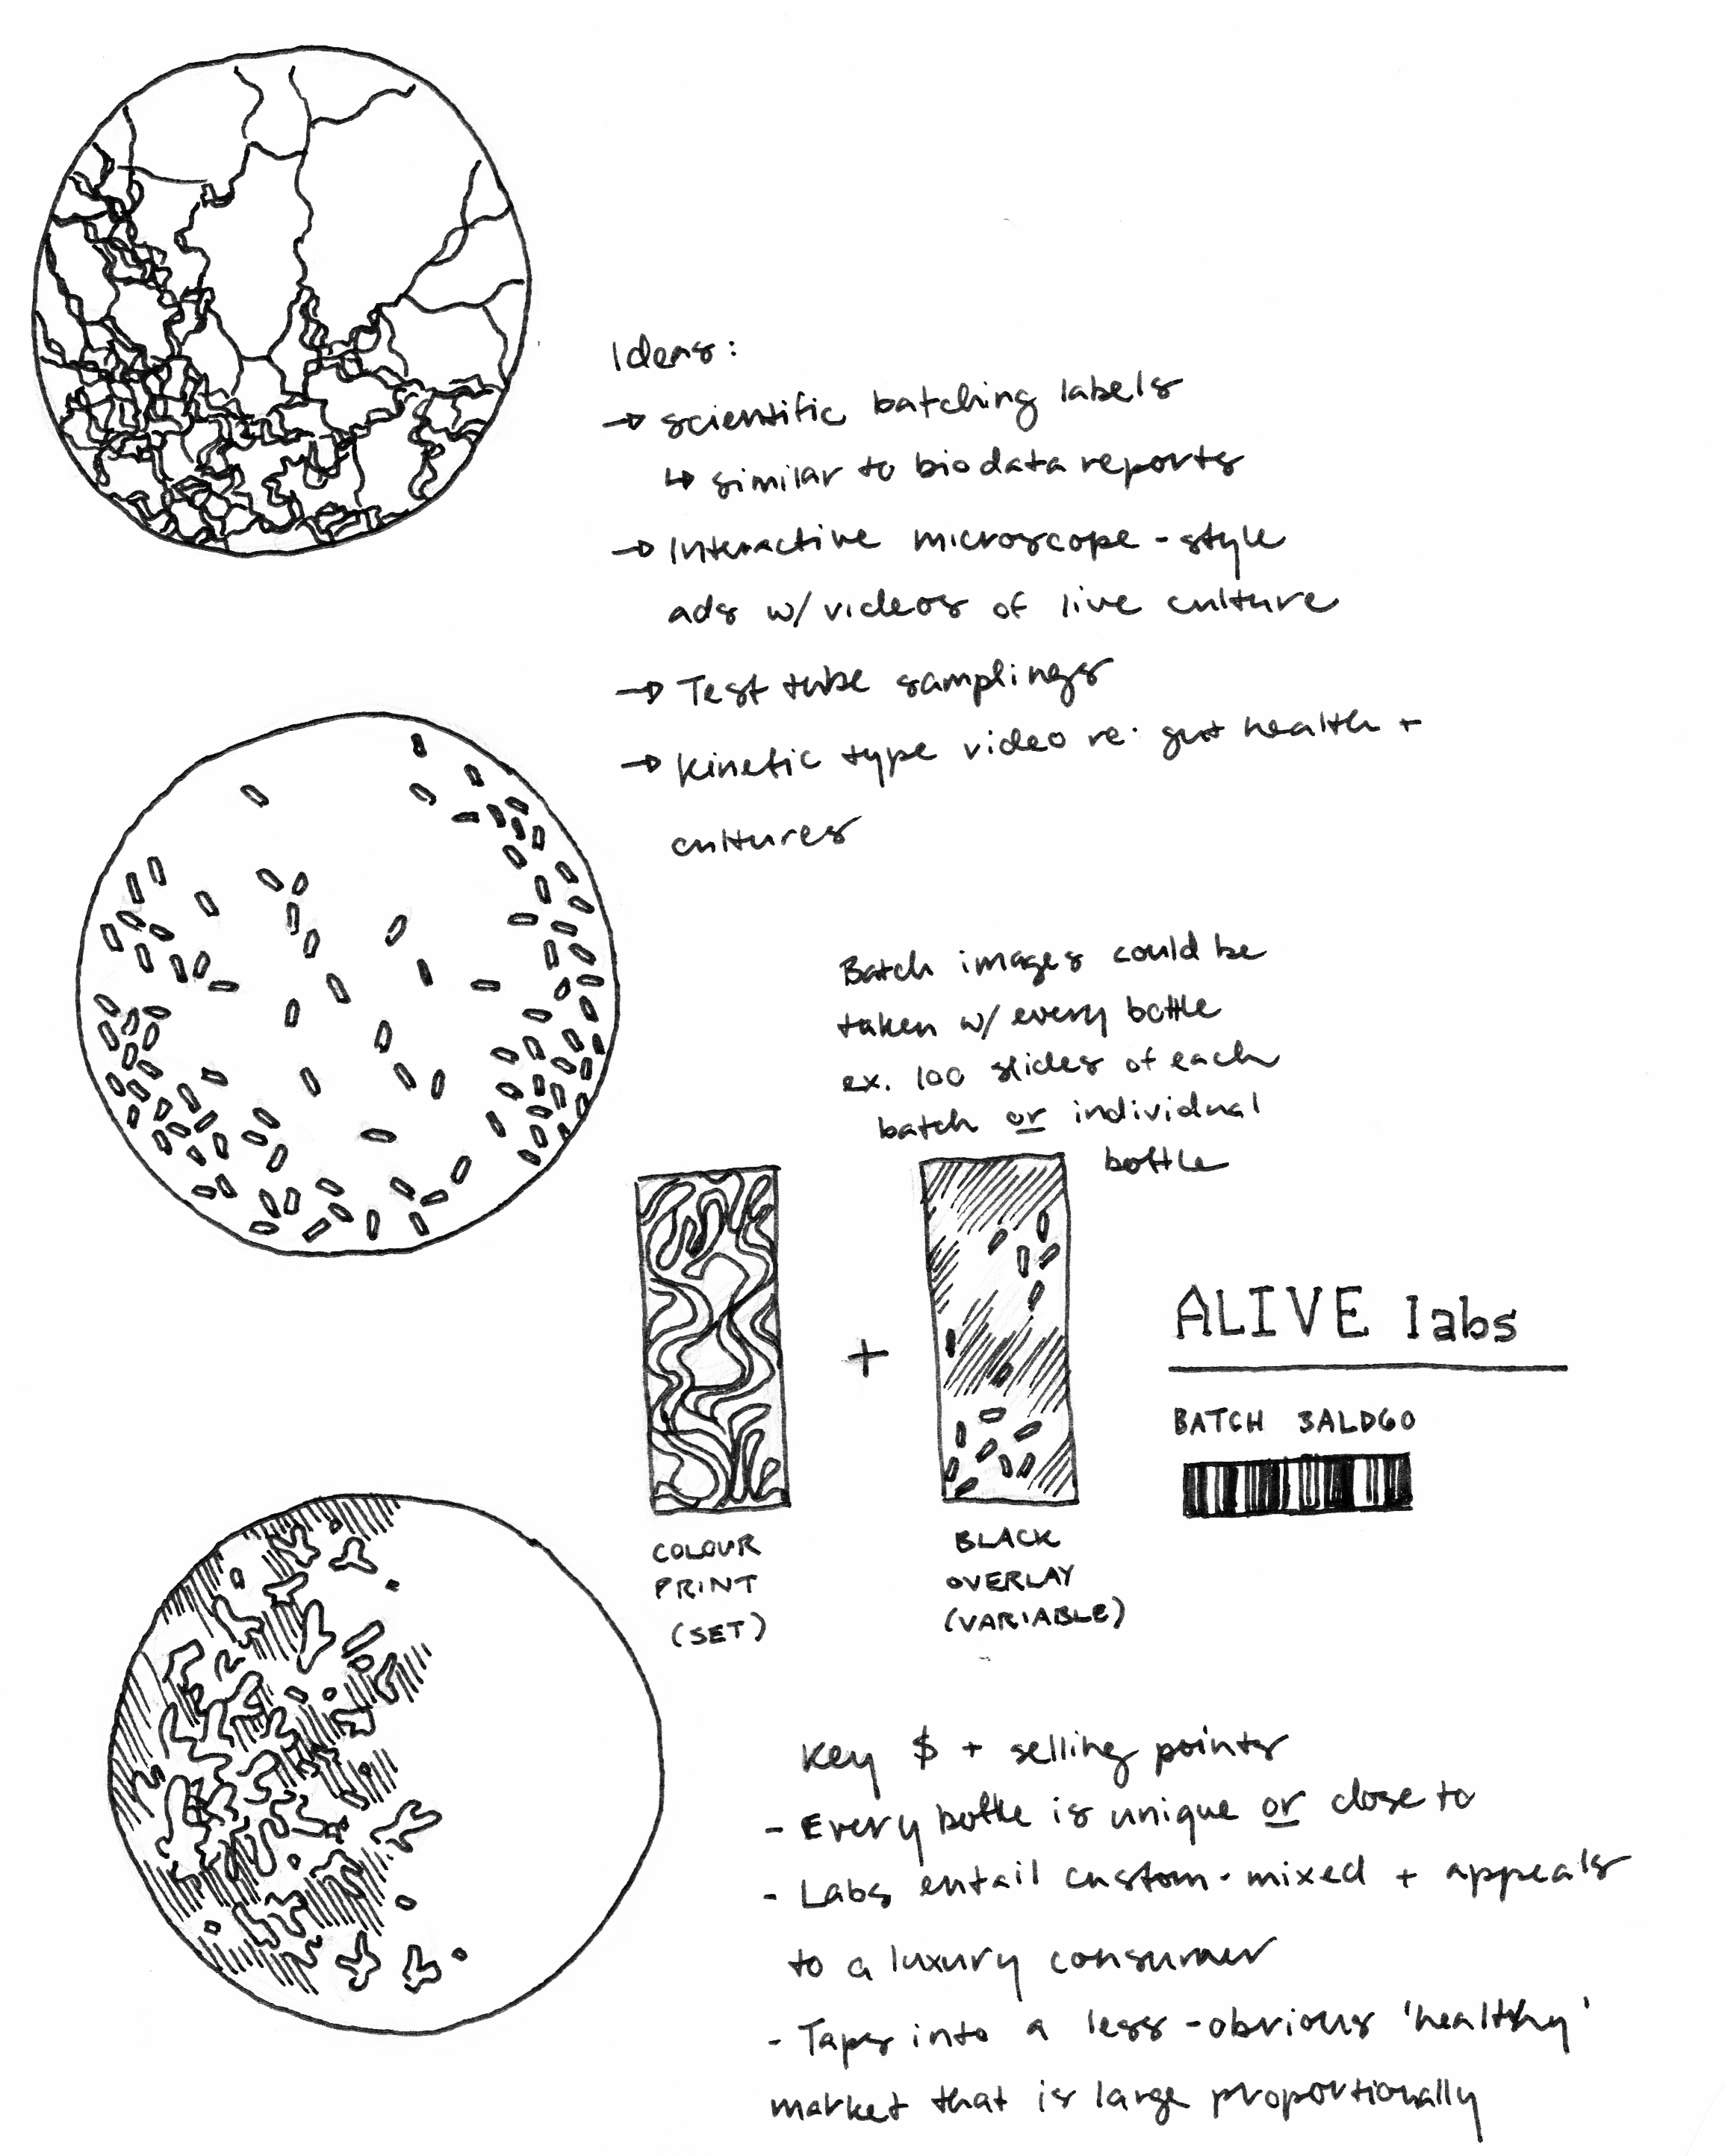 Ideas:
→ scientific batching labels
↳ similar to biodata reports
→ Interactive microscope-style
ads w/ videos of live culture
→ Test tube samplings
→ kinetic type video re: gut health +
cultures
Batch images could be
taken w/ every bottle
ex. 100 slides of each
batch or individual
bottle
+
ALIVE labs
BATCH 3ALD60
COLOUR
PRINT
(SET)
BLACK
OVERLAY
(VARIABLE)
Key $ + selling points
- Every bottle is unique or close to
- Labs entail custom-mixed + appeals
to a luxury consumer
- Taps into a less-obvious 'healthy'
market that is large proportionally